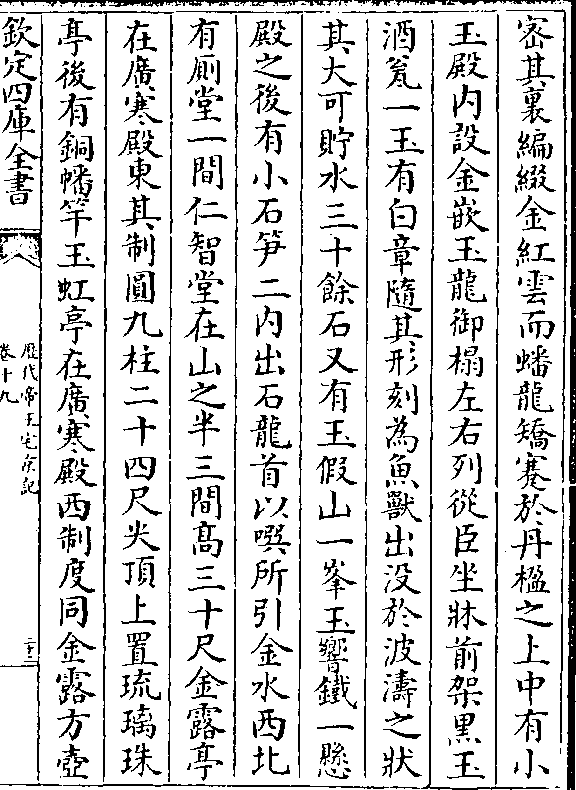 宻其裏編綴金紅雲而蟠龍矯蹇於丹楹之上中有小
玉殿内設金嵌玉龍御榻左右列從臣坐牀前架黒玉
酒瓮一玉有白章隨其形刻為魚獸出没於波濤之狀
其大可貯水三十餘石又有玉假山一峯玉響鐵一懸
殿之後有小石笋二内出石龍首以噀所引金水西北
有厠堂一間仁智堂在山之半三間髙三十尺金露亭
在廣寒殿東其制圓九柱二十四尺尖頂上置琉璃珠
亭後有銅幡竿玉虹亭在廣寒殿西制度同金露方壺
欽定四庫全書
歴代帝王宅京記
卷十九